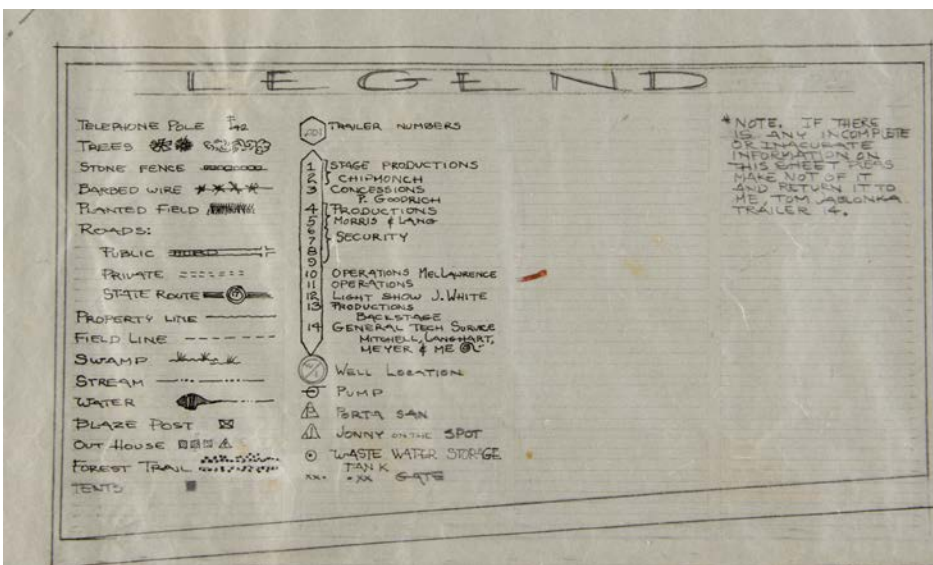 LEGEND
TELEPHONE POLE 42
TREES
STONE FENCE
BARBED WIRE
PLANTED FIELD
ROADS:
PUBLIC
PRIVATE
STATE ROUTE
PROPERTY LINE
FIELD LINE
SWAMP
STREAM
WATER
BLAZE POST
OUT HOUSE
FOREST TRAIL
TENTS
TRAILER NUMBERS
1 STAGE PRODUCTIONS
2 CHIPMONCH
3 CONCESSIONS
P. GOODRICH
4 PRODUCTIONS
5 MORRIS & LANG
6
7 SECURITY
8
9
10 OPERATIONS MEL LAWRENCE
11 OPERATIONS
12 LIGHT SHOW J. WHITE
13 PRODUCTIONS
BACKSTAGE
14 GENERAL TECH SURVICE
MITCHELL, LANGHART,
MEYER & ME
WELL LOCATION
PUMP
PORTA SAN
JONNY ON THE SPOT
WASTE WATER STORAGE
TANK
XX• •XX GATE
*NOTE. IF THERE
IS ANY INCOMPLETE
OR INACURATE
INFORMATION ON
THIS SHEET PLEAS
MAKE NOT OF IT
AND RETURN IT TO
ME, TOM JABLONKA
TRAILER 14.